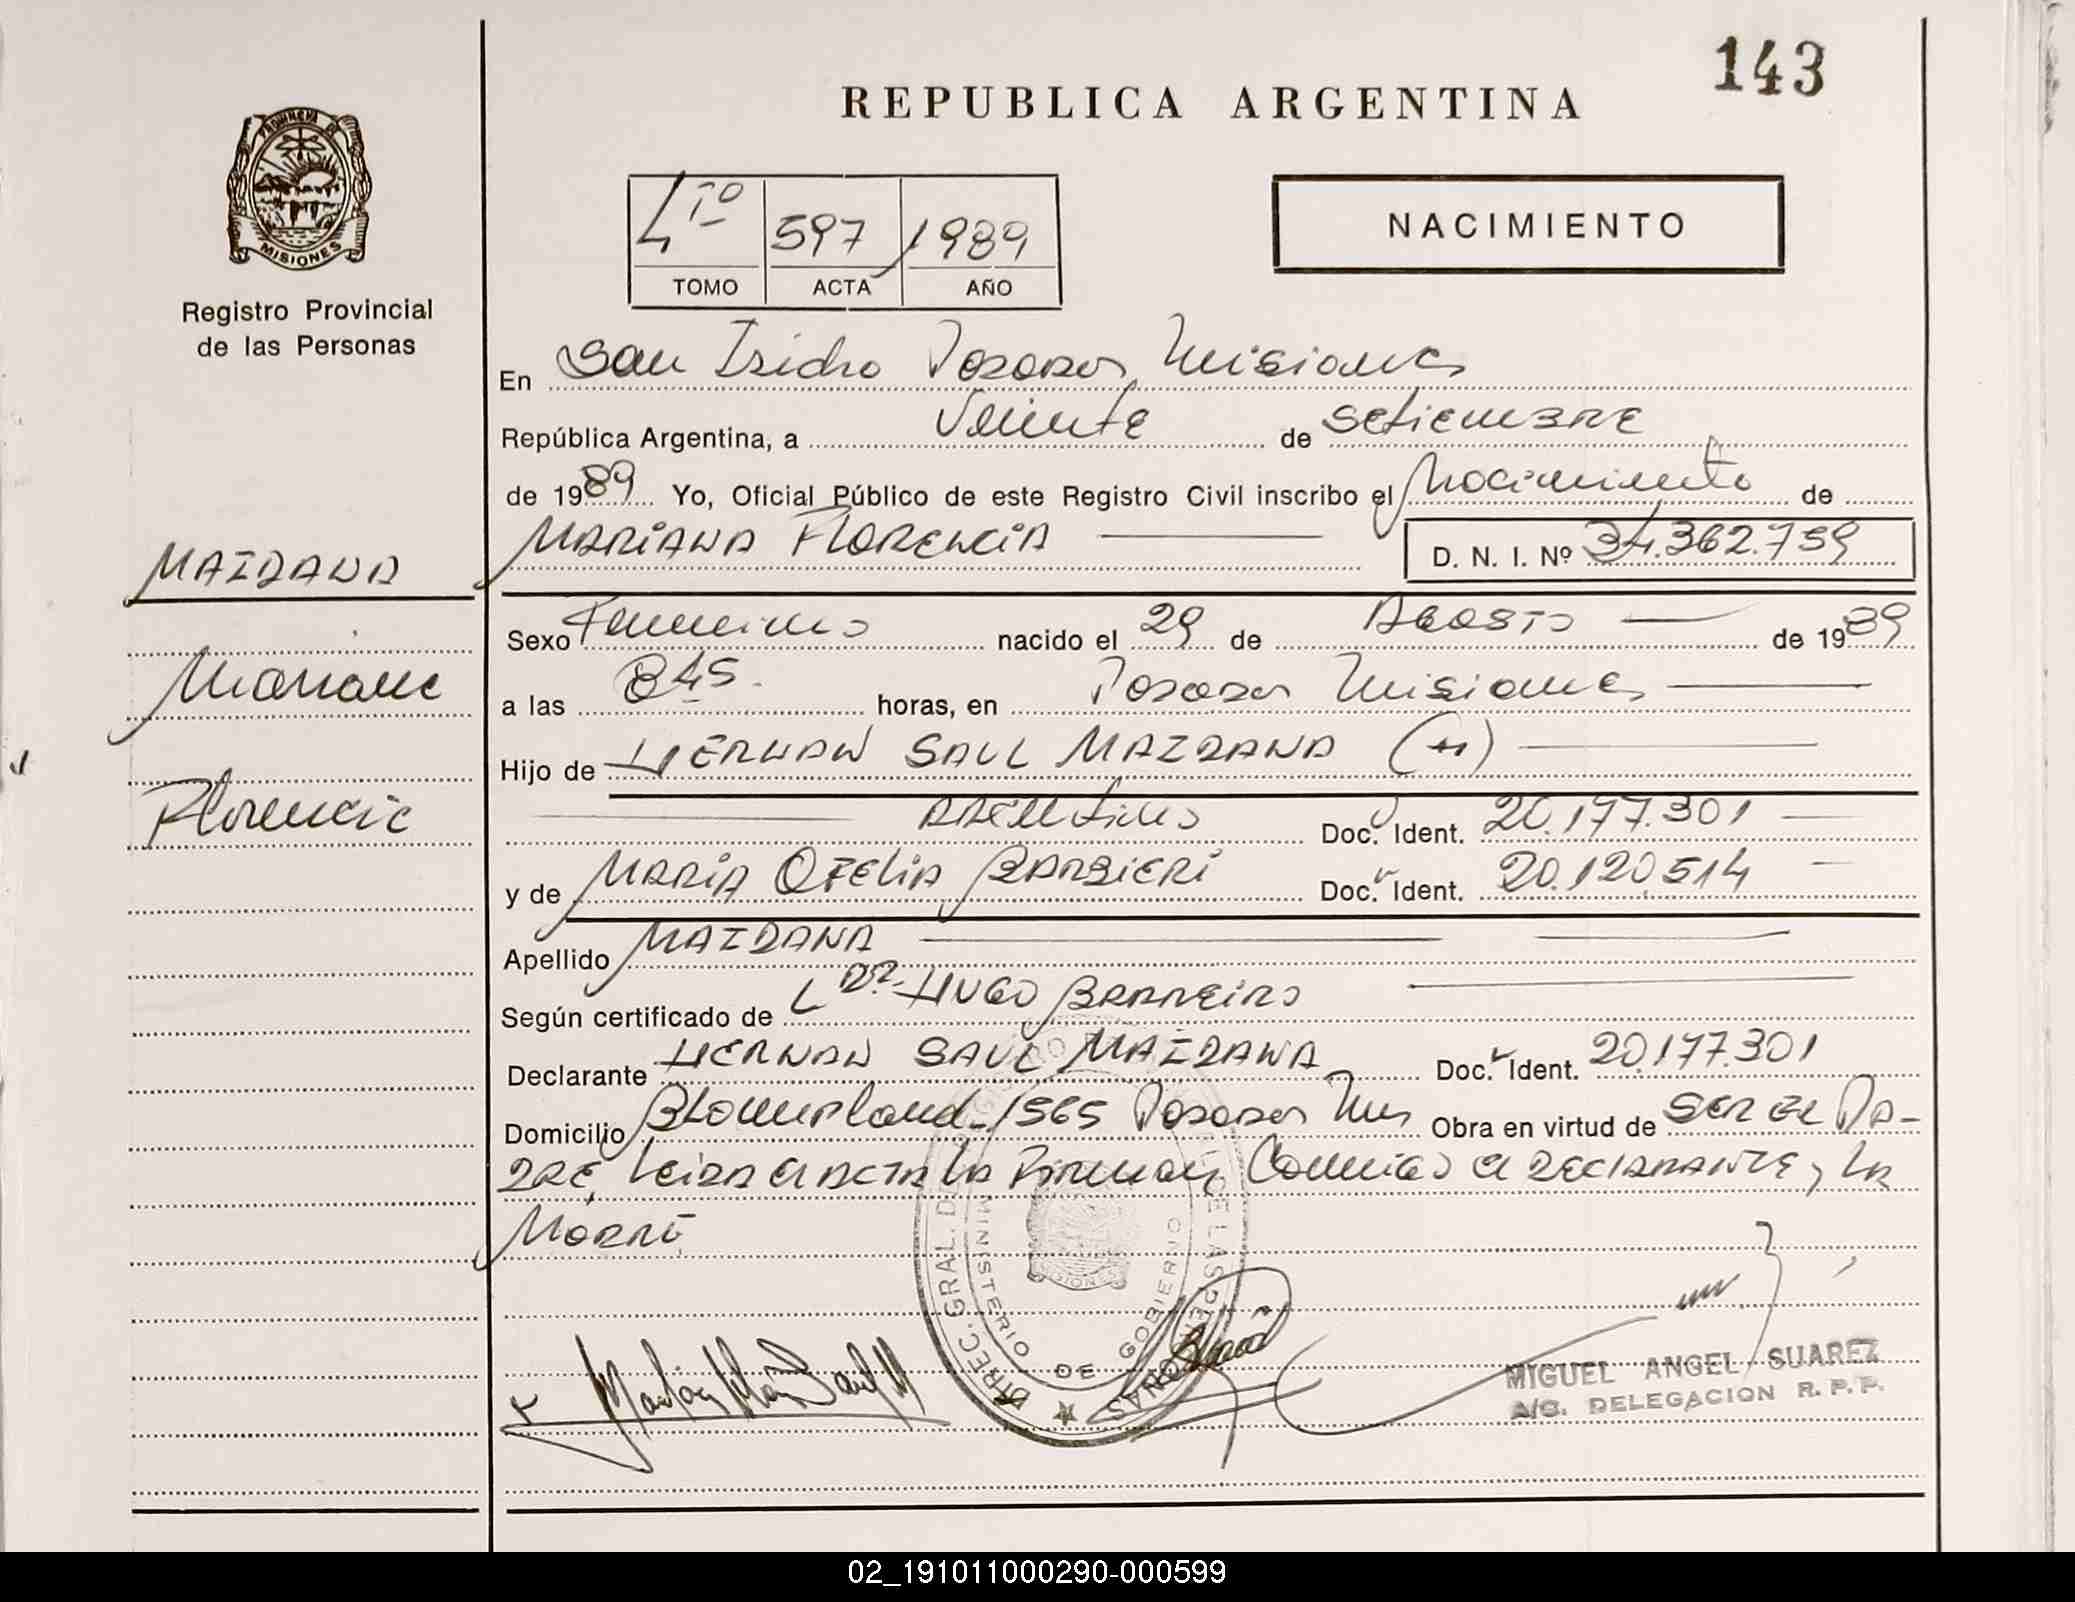 143
REPUBLICA ARGENTINA
PROVINCIA DE
MISIONES
Registro Provincial
de las Personas
4to 597 1989
TOMO ACTA AÑO
NACIMIENTO
En San Isidro Posadas, Misiones
República Argentina, a Veinte de Setiembre
de 1989 Yo, Oficial Público de este Registro Civil inscribo el Nacimiento de
MAIDANA
MARIANA FLORENCIA D. N. I. Nº 34.362.759
Sexo Femenino nacido el 29 de Agosto de 1989
Mariana
a las 845. horas, en Posadas Misiones
Hijo de HERNAN SAUL MAIDANA (H)
Florencia
Argentino Doc. Ident. 20.177.301
y de MARIA OFELIA BARBIERI Doc. Ident. 20.120.514
Apellido MAIDANA
Según certificado de Dr. HUGO BARREIRO
Declarante HERNAN SAUL MAIDANA Doc. Ident. 20.177.301
Domicilio 1565 Posadas Mnes Obra en virtud de SER EL PA-
DRE, Leida el acta la Firman Conmigo el DECLARANTE, y la
Madre
DIREC. GRAL. DEL REGISTRO DE LAS PERSONAS
MINISTERIO DE GOBIERNO
MISIONES
MIGUEL ANGEL SUAREZ
A/C. DELEGACION R. P. P.
02_191011000290-000599